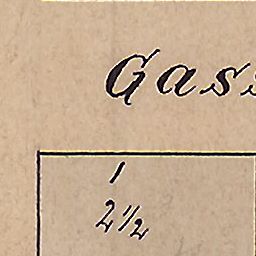 Gass
1
2½